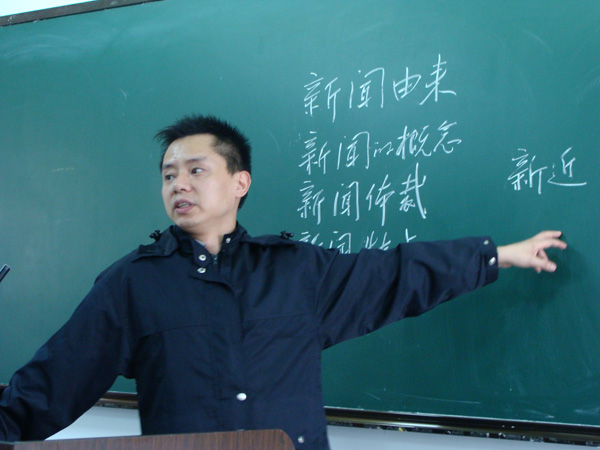 新闻由来
新闻的概念
新闻体裁
新闻特点
新近